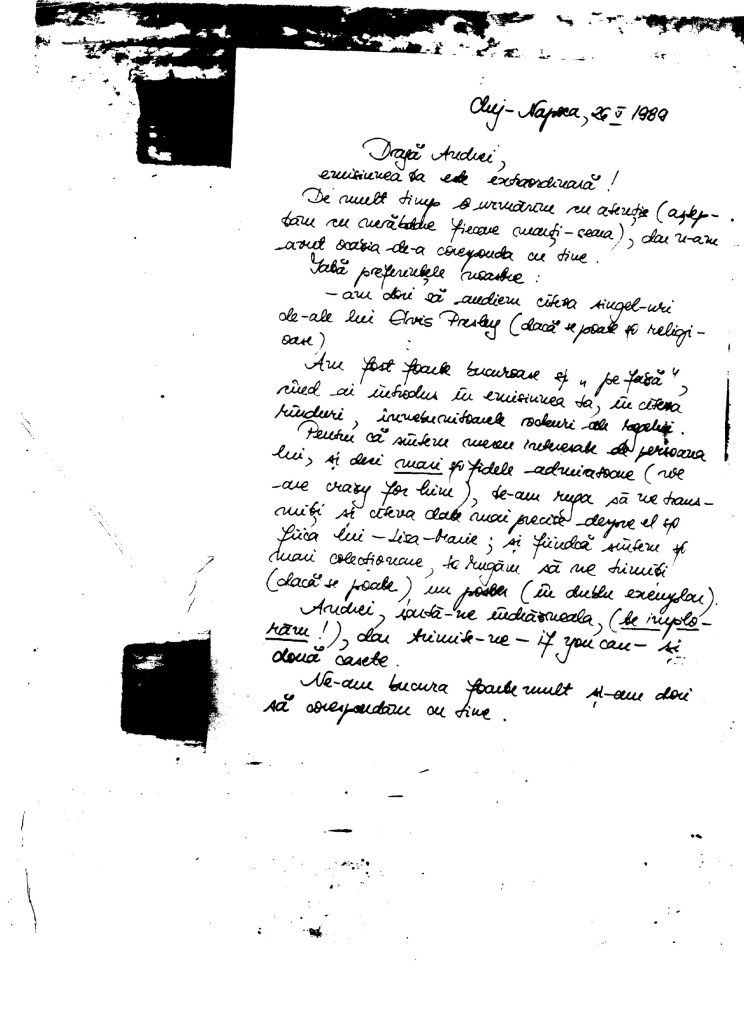 Cluj-Napoca, 26 V 1989
Dragă Andrei,
emisiunea ta este extraordinară!
De mult timp o urmărim cu atenţie (aştep-
tăm cu nerăbdare fiecare marţi-seara), dar n-am
avut ocazia de-a coresponda cu tine.
Iată preferinţele noastre:
- am dori să audiem cîteva singel-uri
de-ale lui Elvis Presley (dacă se poate şi religi-
oase)
Am fost foarte bucuroase şi „pe fază",
cînd ai introdus în emisiunea ta, în cîteva
rînduri, innebunitoarele rockuri ale regelui.
Pentru că sîntem mereu interesate de persoana
lui, şi deci mari şi fidele admiratoare (we
are crazy for him), te-am ruga să ne trans-
miţi şi cîteva date mai precise despre el şi
fiica lui - Lisa-Marie; şi fiindcă sîntem şi
mari colecţionare, te rugăm să ne trimiţi
(dacă se poate) un poster (în dublu exemplar).
Andrei, iartă-ne îndrăzneala, (te implo-
răm!), dar trimite-ne - if you can - şi
două casete.
Ne-am bucura foarte mult şi-am dori
să corespondăm cu tine.